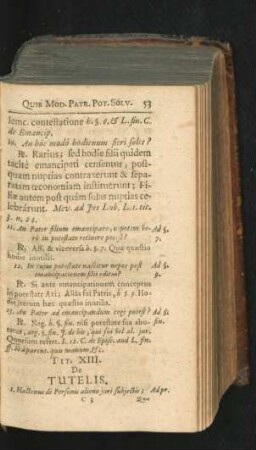 QUIB. MOD. PATR. POT. SOLV. 53
lemc. contestatione h. §. 6. & L. fin. C.
de Emancip.
10. An hic modus hodiernum fieri solet?
R. Rarius; sed hodie filii quidem
tacite emancipati censentur, post-
quam nuptias contraxerunt & sepa-
ratam œconomiam instituerunt; Fi-
liæ autem post quam solùm nuptias ce-
lebrârunt. Mev. ad Jus Lub. L. 1. tit.
11. An Pater filium emancipare, nepotem ve-
rò in potestate retinere possit? Ad §. 7.
R. Aff. & viceversâ h. §. 7. Quæ quæstio
hodie inutilis.
12. In cujus potestate nascitur nepos post
emancipationem filii editus? Ad §. 9.
R. Si ante emancipationem conceptus
in potestate Avi; Aliàs sui Patris, h. §. 9. Ho-
die iterum hæc quæstio inutilis.
13. An Pater ad emancipandum cogi potest? Ad §.
R. Neg. h. §. fin. nisi potestate sua abu-
TIT. XIII.
De
TUTELIS.
1. Hactenus de Personis alieno juri subjectis; Ad pr.
C 3